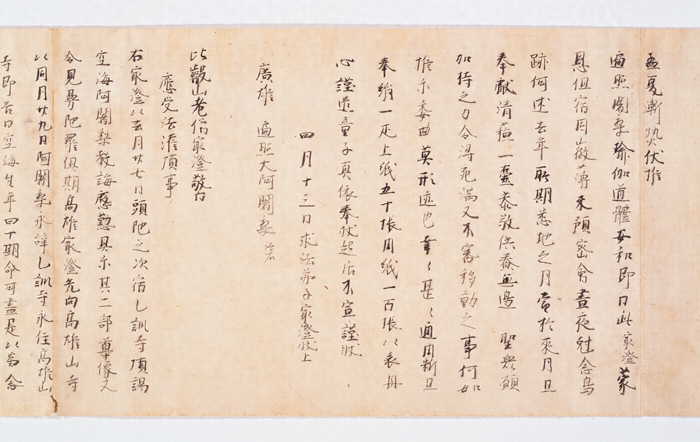 孟夏漸熱伏惟
遍照闍梨瑜伽道體安和即日此最澄蒙
恩但宿因薄未預密會晝夜社念
跡何述去年所期悉地之月當於來月旦
奉獻清 一 恭敬供養無邊 聖衆願
加持之力令得 滿又不審移動之事何如
惟示委曲莫形迹也幸〻甚〻通用 且
奉絹一疋上紙五十張用紙一百張以表丹
心謹遣童子真依奉狀起居不宣謹狀
四月十三日求法弟子最澄狀上
高雄 遍照大阿闍梨
比叡山老僧最澄敬白
應受法灌頂事
右最澄以去月廿七日頭陀之次宿乙訓寺頂謁
空海阿闍梨教誨慇懃具示其二部尊像又
令見曼陀羅俱期高雄最澄先向高雄山寺
以同月廿九日阿闍梨永辭乙訓寺永住高雄山
寺即告曰空海生年四十期命可盡是以為念